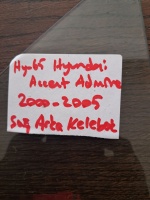 Hy-65 Hyundai
Accent Admire
2000-2005
Sağ Arka Kelebek